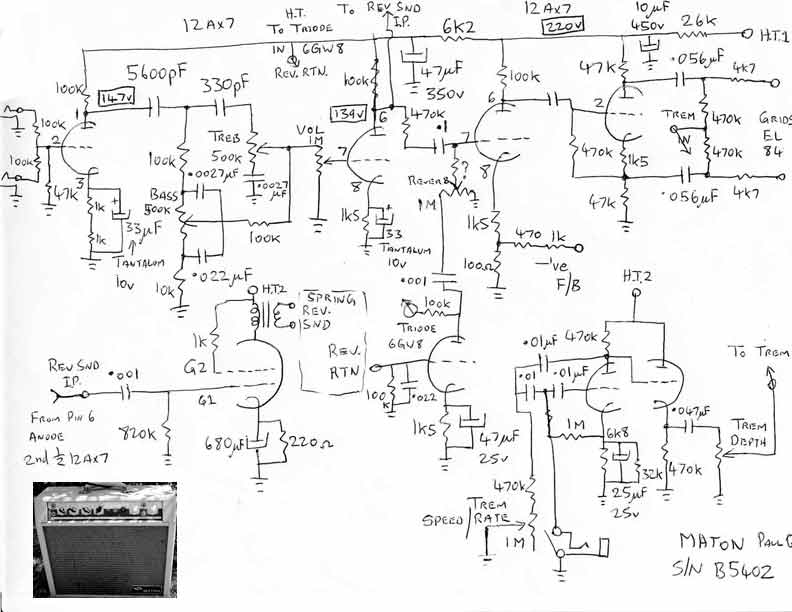 12AX7
H.T.
TO TRIODE
IN 6GW8
REV. RTN.
TO REV SND
I.P.
6K2
12AX7
220V
10µF
450V
26K
H.T.1
100k
5600pF
330pF
147V
1
2
3
100k
100k
47K
1k
1k
33µF
TANTALUM
10V
100k
TREB
500k
.0027µF
.0027µF
BASS
500k
100k
10k
.022µF
VOL
1M
100k
139V
6
7
8
1k5
33
TANTALUM
10V
47µF
350V
470k
.1
REVERB
?
1M
.001
100k
6
7
8
1k5
100Ω
470 1k
-'ve
F/B
47k
2
470k
1k5
47k
.056µF
.056µF
TREM
IN
470k
470k
4k7
4k7
GRIDS
EL
84
H.T.2
SPRING
REV.
SND
1k
G2
G1
REV SND
I.P.
.001
FROM PIN 6
ANODE
2nd ½ 12AX7
820k
680µF
220Ω
TRIODE
6GW8
REV.
RTN
100
k
.022
1k5
47µF
25V
H.T.2
470k
.01µF
.01
.01µF
1M
6K8
32k
25µF
25V
.047µF
470k
TO TREM
TREM
DEPTH
470k
SPEED/TREM
RATE
1M
MATON
S/N B5402